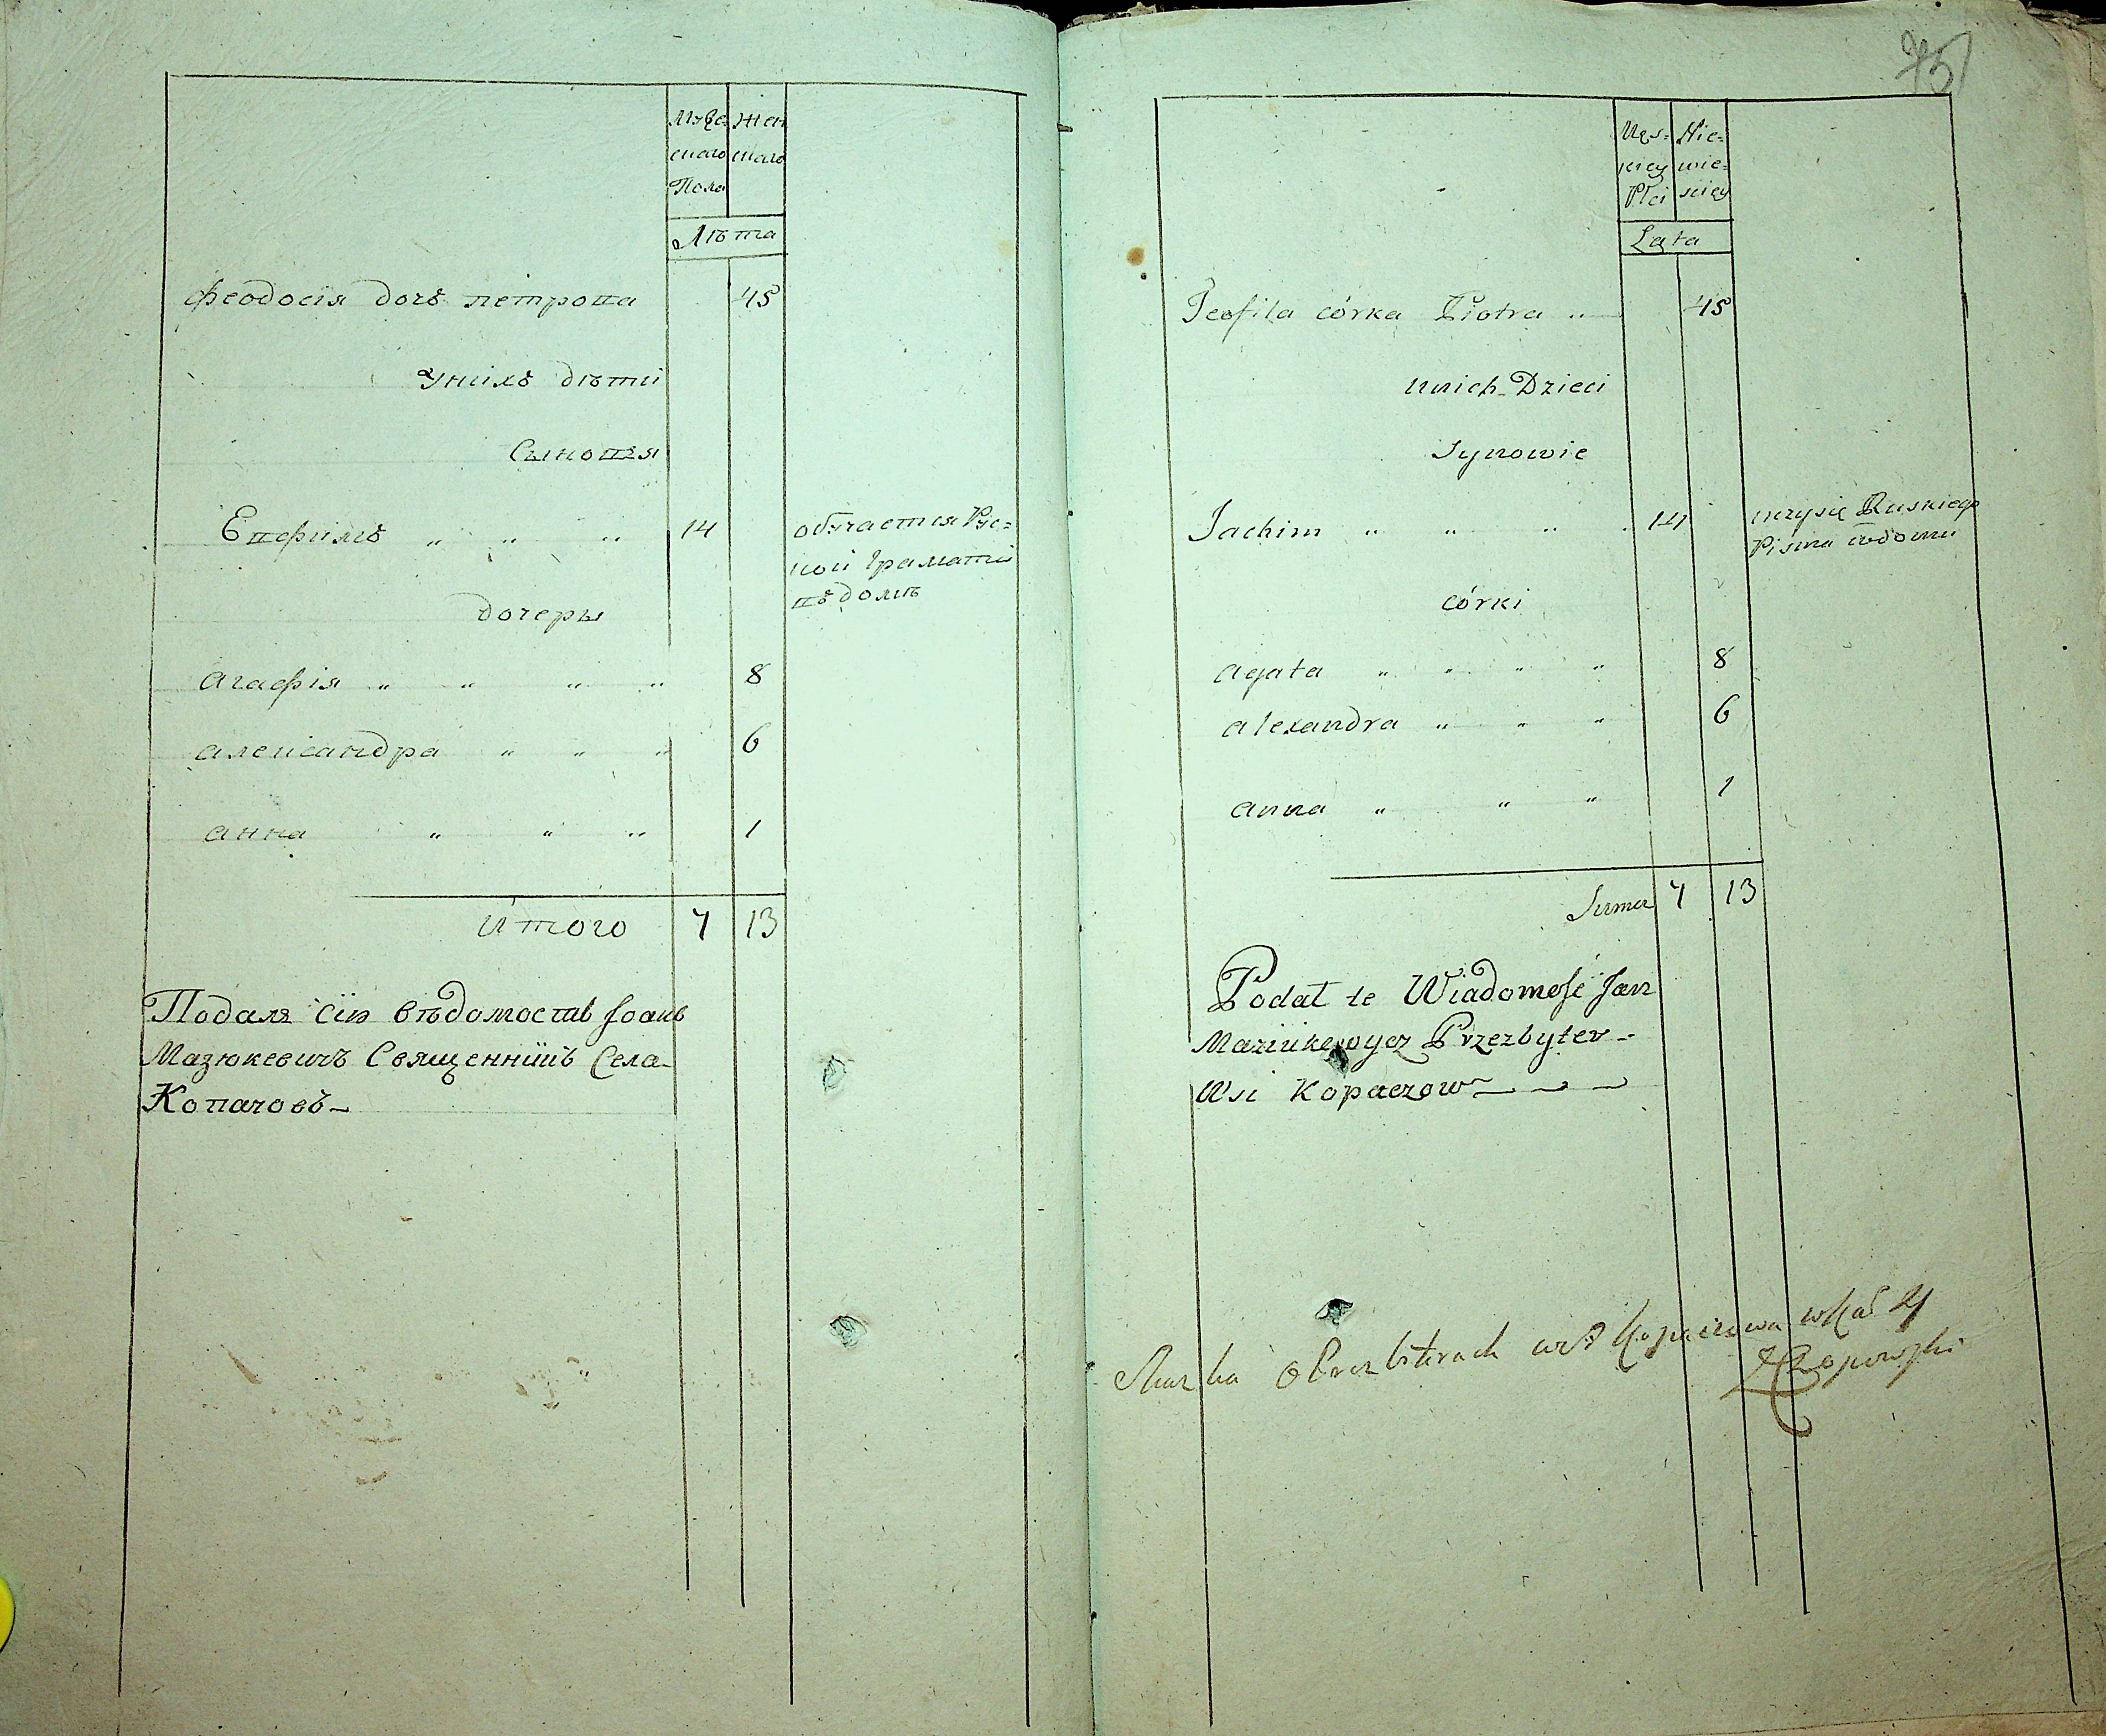 Муже- Жен
скаго скаго
Пола
Лѣта
феодосія дочъ петрова 45
Унихъ дѣти
Сыновъя
Евфимъ 14 обучается Рус-
кой граматы
въ домѣ
дочеры
агафія 8
александра 6
анна 1
Итого 7 13
Подалъ сіи вѣдомость Іоанъ
Мазюкевичъ Священникъ Села
Копачовъ
75
Męs- Nie-
kiey wie-
Płci sciey
Lata
Teofila córka Piotra 45
unich Dzieci
Synowie
Jachim 14 uczysię Ruskiego
Pisma wdomu
córki
agata 8
alexandra 6
anna 1
Summa 7 13
Podał te Wiadomość Jan
Maziukewycz Przezbyter
Wsi Kopaczow